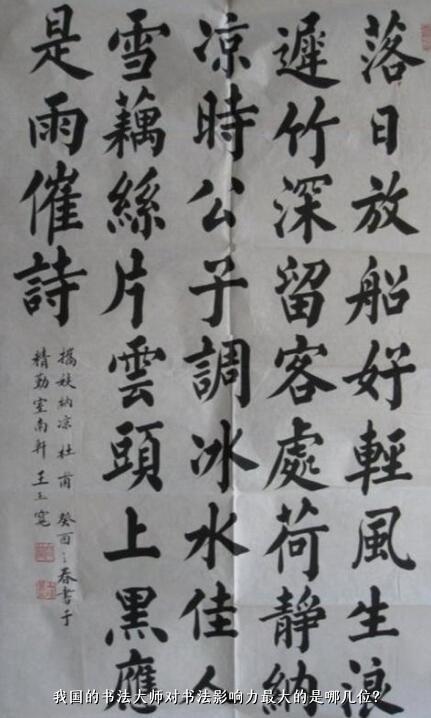 落日放船好輕風生浪
遲竹深留客處荷靜納
凉時公子調冰水佳人
雪藕絲片雲頭上黑應
是雨催詩
攜妓納凉 杜甫 癸酉之春書于
精勤室南軒 王玉
我国的书法大师对书法影响力最大的是哪几位?